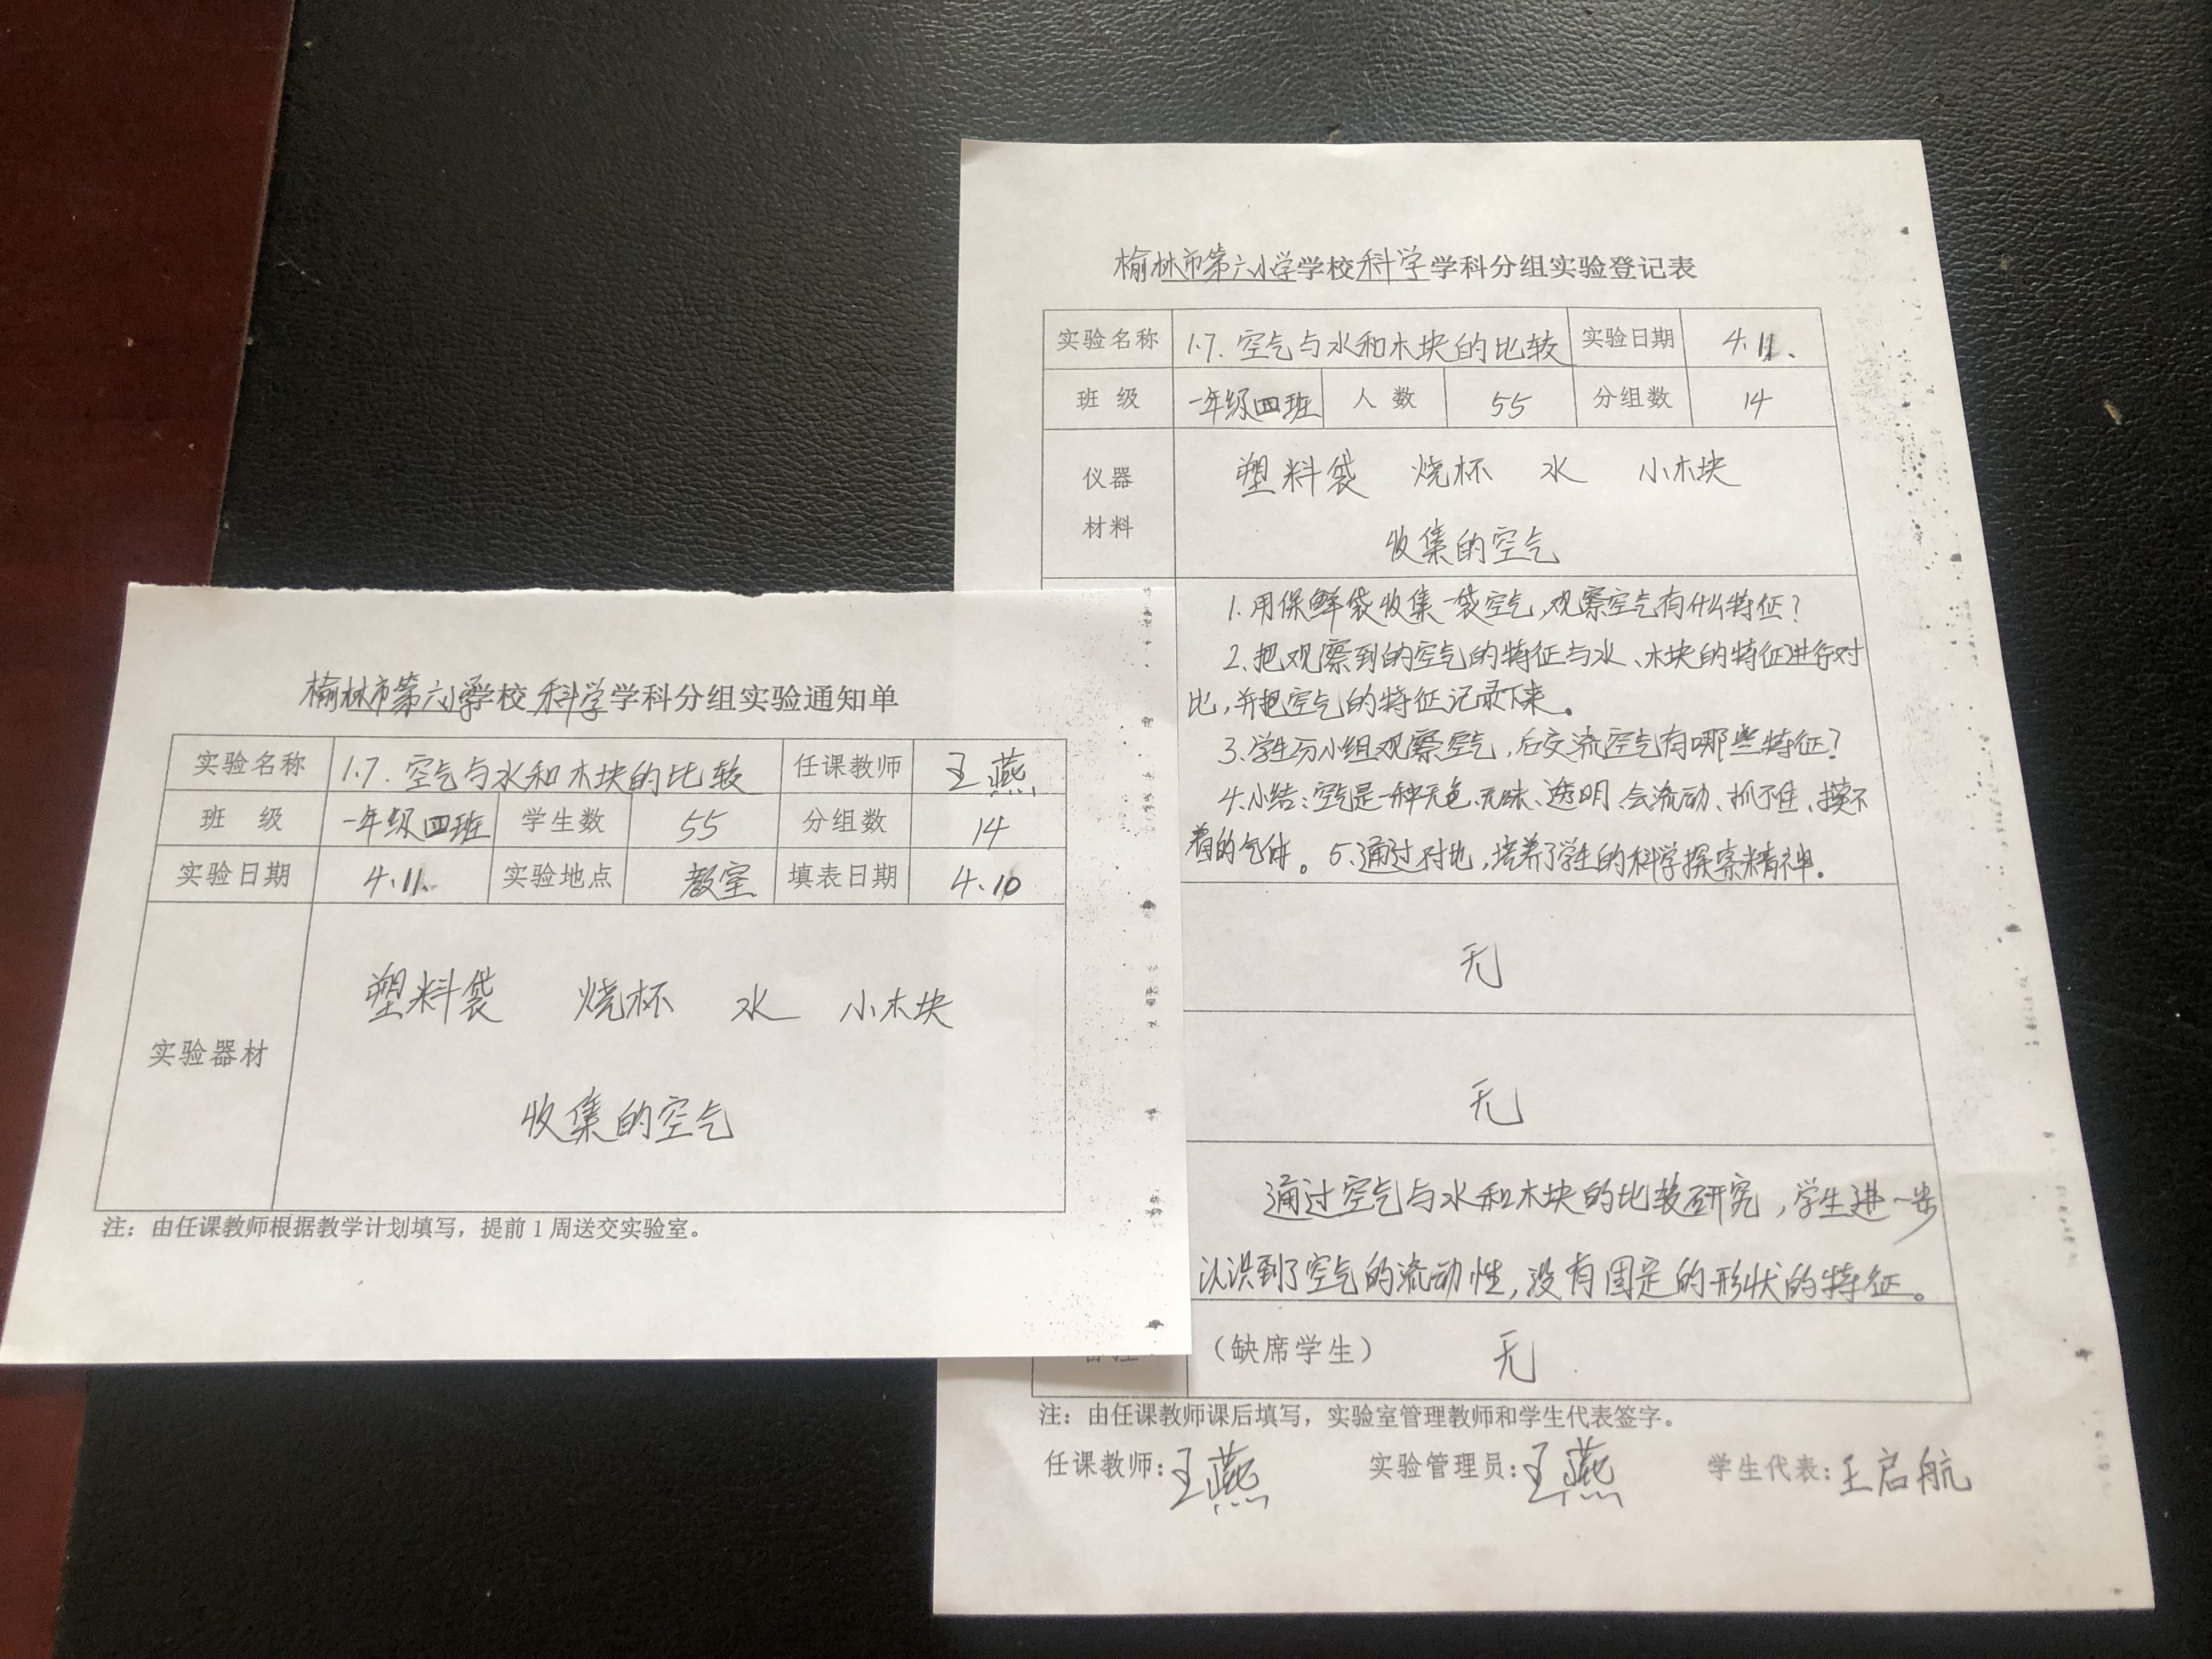 榆林市第六小学学校科学学科分组实验通知单
实验名称 1.7.空气与水和木块的比较 任课教师 王燕
班 级 一年级四班 学生数 55 分组数 14
实验日期 4.11. 实验地点 教室 填表日期 4.10
实验器材
塑料袋 烧杯 水 小木块
收集的空气
注：由任课教师根据教学计划填写，提前1周送交实验室。
榆林市第六小学学校科学学科分组实验登记表
实验名称 1.7.空气与水和木块的比较 实验日期 4.11.
班 级 一年级四班 人 数 55 分组数 14
仪器
材料
塑料袋 烧杯 水 小木块
收集的空气
1.用保鲜袋收集一袋空气,观察空气有什么特征?
2、把观察到的空气的特征与水、木块的特征进行对
比,并把空气的特征记录下来。
3.学生分小组观察空气,后交流空气有哪些特征?
4.小结:空气是一种无色、无味、透明、会流动、抓不住、摸不
着的气体。5、通过对比,培养了学生的科学探索精神。
无
无
通过空气与水和木块的比较研究,学生进一步
认识到了空气的流动性,没有固定的形状的特征。
（缺席学生） 无
注：由任课教师课后填写，实验室管理教师和学生代表签字。
任课教师：王燕 实验管理员：王燕 学生代表：王启航